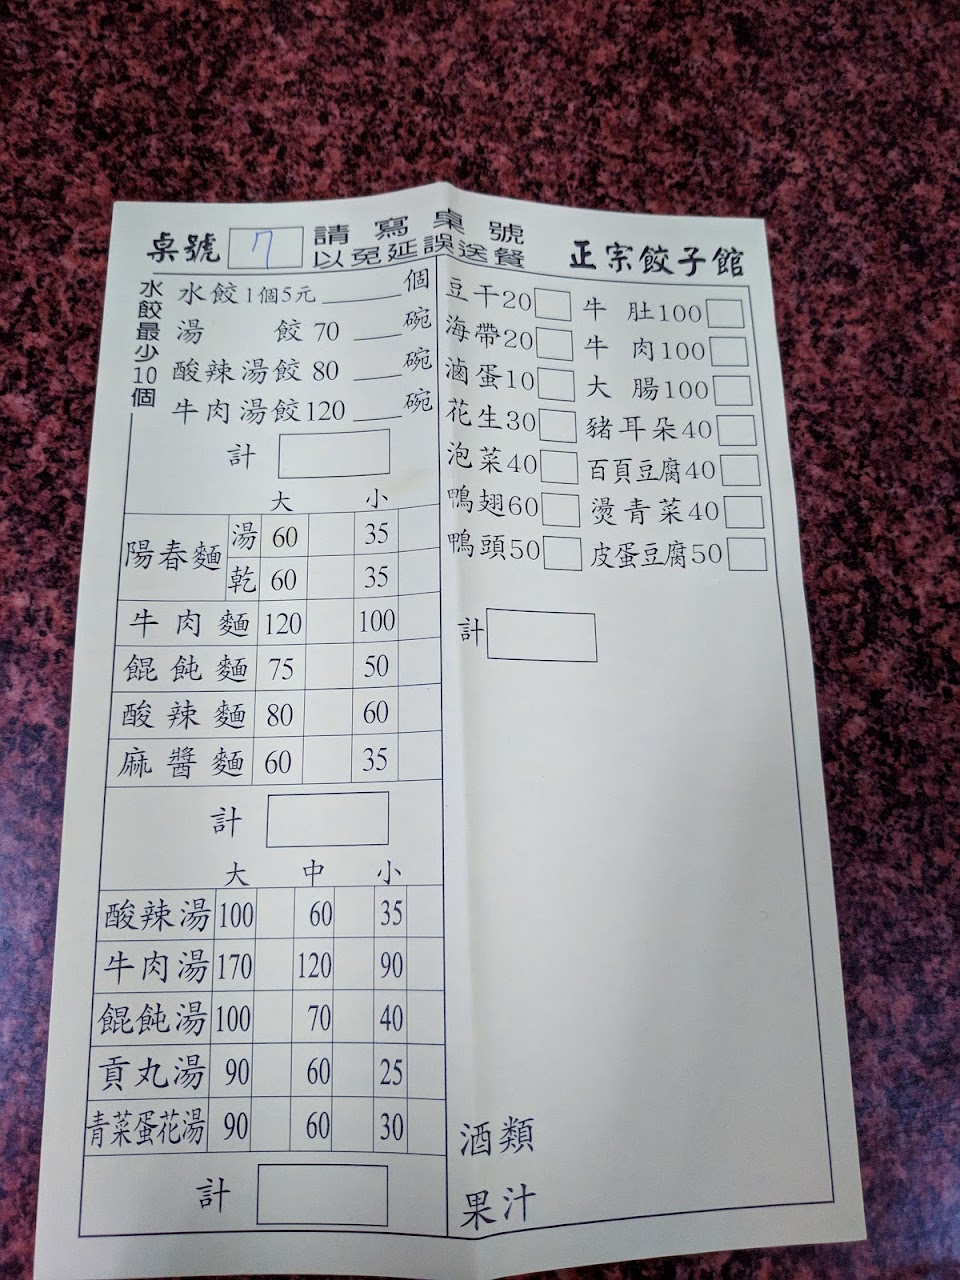 桌號 7 請寫桌號 正宗餃子館
以免延誤送餐
水餃最少10個
水餃1個5元______個
湯餃70 ___碗
酸辣湯餃80 ___碗
牛肉湯餃120 ___碗
計
大 小
陽春麵 湯 60 35
乾 60 35
牛肉麵 120 100
餛飩麵 75 50
酸辣麵 80 60
麻醬麵 60 35
計
大 中 小
酸辣湯 100 60 35
牛肉湯 170 120 90
餛飩湯 100 70 40
貢丸湯 90 60 25
青菜蛋花湯 90 60 30
計
豆干20 牛肚100
海帶20 牛肉100
滷蛋10 大腸100
花生30 豬耳朵40
泡菜40 百頁豆腐40
鴨翅60 燙青菜40
鴨頭50 皮蛋豆腐50
計
酒類
果汁